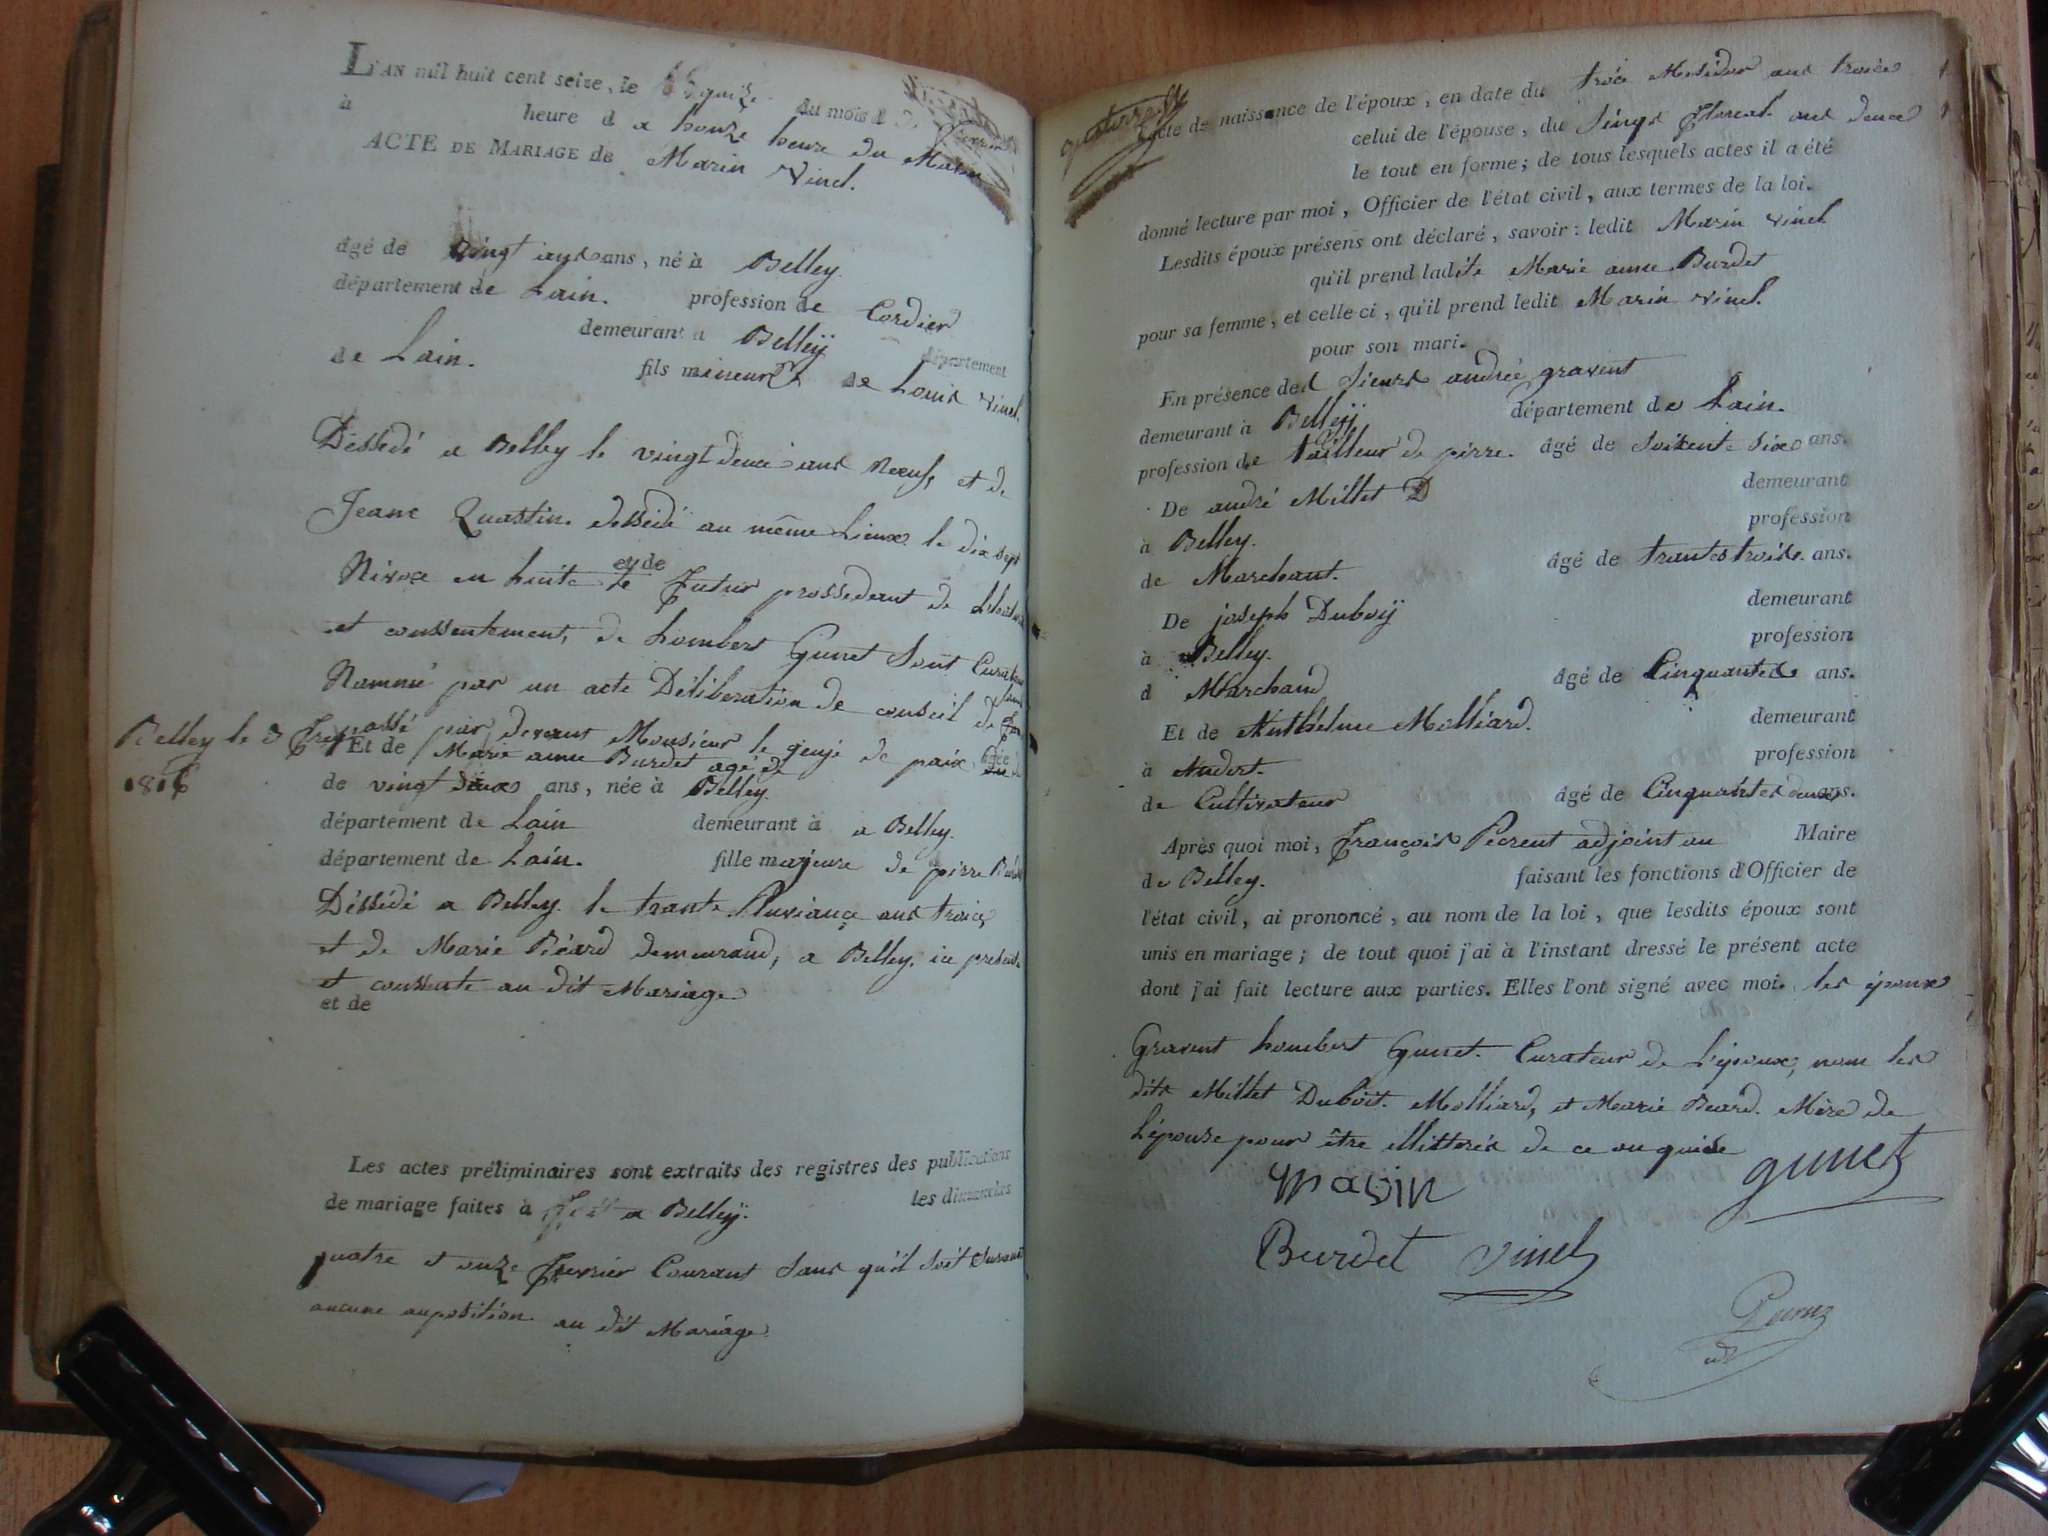 L'AN mil huit cent seize, le quize du mois d
à heure d a honze heure du Matin
ACTE DE MARIAGE de Marin Vinel.
âgé de vingt ans ans, né à Belley.
département de Lain. profession de Cordier
demeurant a Belleÿ département
de Lain. fils mineur de Louis Vinel.
Dessedé a Belley le vingt deuce ans Noeuf, et de
Jeane Quastin. dessedé au même Lieux le dix sept
Nivoce en huite et de le Futur prossedant de
et conssentement, de hombert Gunet Sont Curateur
Nommé par un acte Déliberation de conseil de
Belley le 3 passé par devant Monsieur le geuje de paix
Et de Marie anne Burdet agé de âgée
1816
de vingt deux ans, née à Belley.
département de Lain demeurant à a Belley.
département de Lain. fille majeure de pirre
Déssédé a Belley. le trante Pluviauce ans troice
et de Marie Béard demeurand, a Belley. ice presente
et conssente au dit Mariage
et de
Les actes préliminaires sont extraits des registres des publications
de mariage faites à a Belleÿ. les dimanches
quatre et onze Fevrier Courant Sans qu'il soit Survenu
aucune auposition au dit Mariage.
quatorze
acte de naissance de l'époux, en date du troce Mesidor ans troice
celui de l'épouse, du Floreal ans deuce
le tout en forme; de tous lesquels actes il a été
donné lecture par moi, Officier de l'état civil, aux termes de la loi.
Lesdits époux présens ont déclaré, savoir: ledit Marin Vinel
qu'il prend ladite Marie anne Burdet
pour sa femme, et celle-ci, qu'il prend ledit Marin Vinel.
pour son mari.
En présence des Sieurs andrée gravent
demeurant à Belleÿ département de Lain.
profession de tailleur de pirre. âgé de Soixente Six ans.
De andré Millet demeurant
à Belley. profession
de Marchant. âgé de trantes trois ans.
De joseph Duboÿ demeurant
à Belley. profession
d Marchand âgé de Cinquantes ans.
Et de Anthelme Molliard. demeurant
à Andert. profession
de Cultivateur âgé de Cinquantes deux ans.
Après quoi moi, François Pecrent adjoint au Maire
de Belley. faisant les fonctions d'Officier de
l'état civil, ai prononcé, au nom de la loi, que lesdits époux sont
unis en mariage; de tout quoi j'ai à l'instant dressé le présent acte
dont j'ai fait lecture aux parties. Elles l'ont signé avec moi. les époux
Gravent hombert Gunet. Curateur de L'époux, nom les
dits Millet Duboit. Molliard, et Marie Beard. Mère de
L'épouse pour être illitterés de ce anquise
marin gunet
Burdet vinel